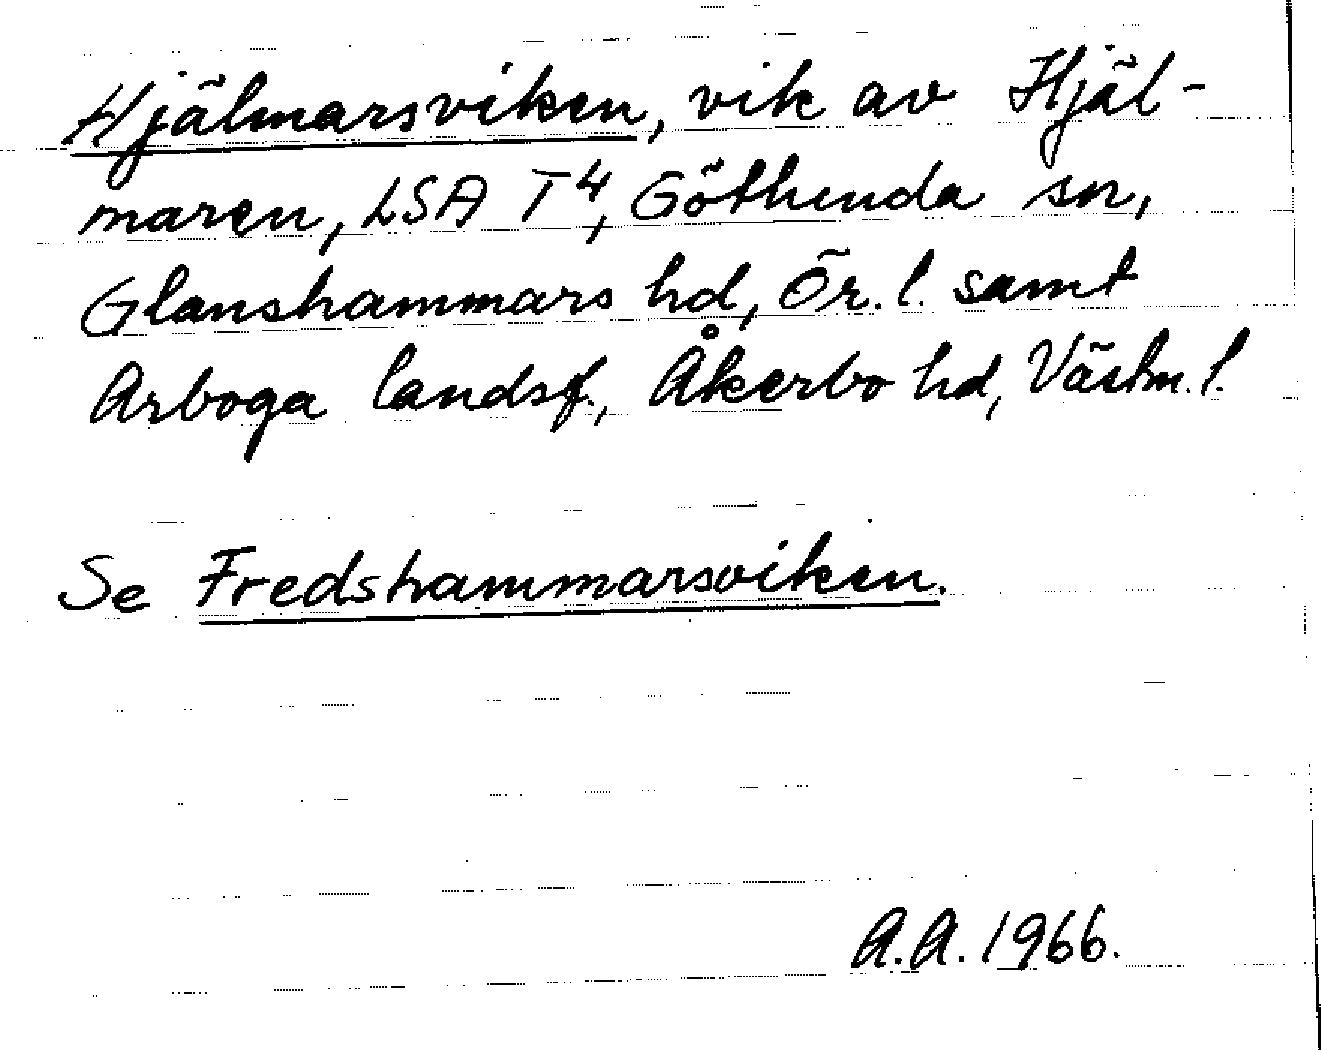 Hjälmarsviken, vik av Hjäl-
maren, LSA T4, Götlunda sn,
Glanshammars hd, Ör. l. samt
Arboga landsf., Åkerbo hd, Västm. l.
Se Fredshammarsviken.
A.A. 1966.